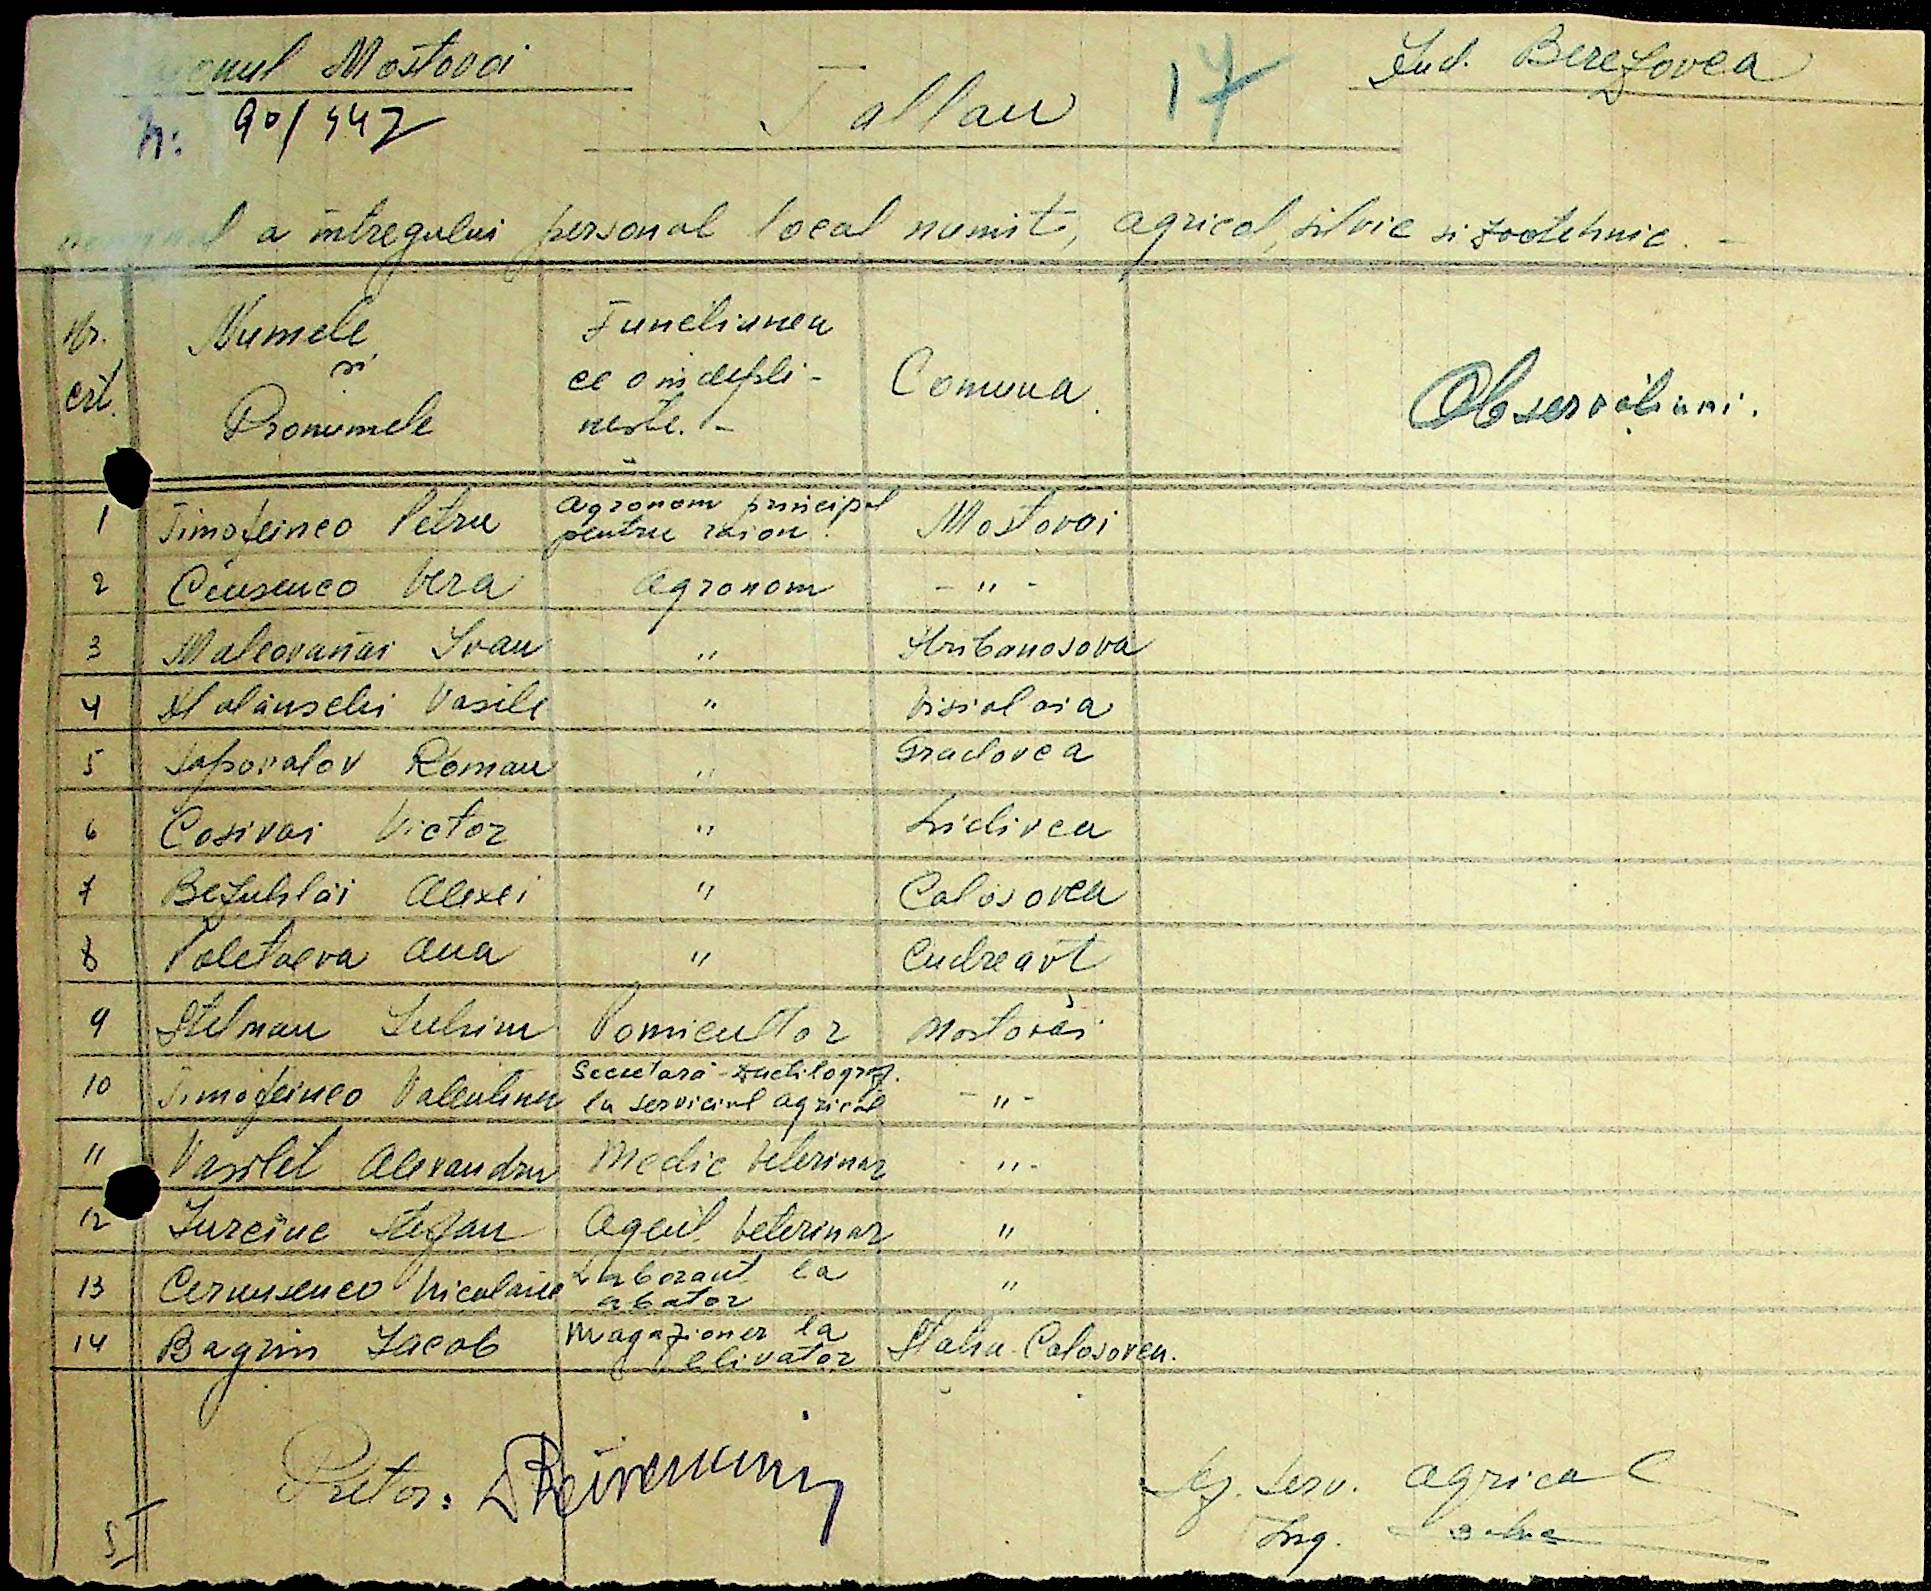 Mostovoi
Jud. Berezovca
N: 90/942
17
Tablau
a intregului personal local numit, agricol, silvic si zootehnic. -
Nr. crt.
Numele si Pronumele
Functiunea ce o indepli- neste. -
Comuna.
Observatiuni.
1 Timofeinco Petru agronom principal pentru raion. Mostovoi
2 Ciusenco Vera agronom - " -
3 Maleovanai Ivan " Hribanosova
4 Halanschi Vasile " Visiolaia
5 Sapovalov Roman " Gradovca
6 Cosivoi Victor " Lidivca
7 Bezuhlai Alexei " Calosovca
8 Poletaeva Ana " Cudreavt
9 Stelman Iuhim Pomicultor Mostovoi
10 Timofeinco Valentina Secretara-Dactilograf. la serviciul agricol - " -
11 Vasilet Alexandru Medic veterinar - " -
12 Iurcinc Stefan Agent veterinar "
13 Cernusenco Nicolaie Laborant la abator "
14 Bagrin Iacob Magazioner la elivator Statia Calosovca.
Pretor:
Serv. agricol
Ing.